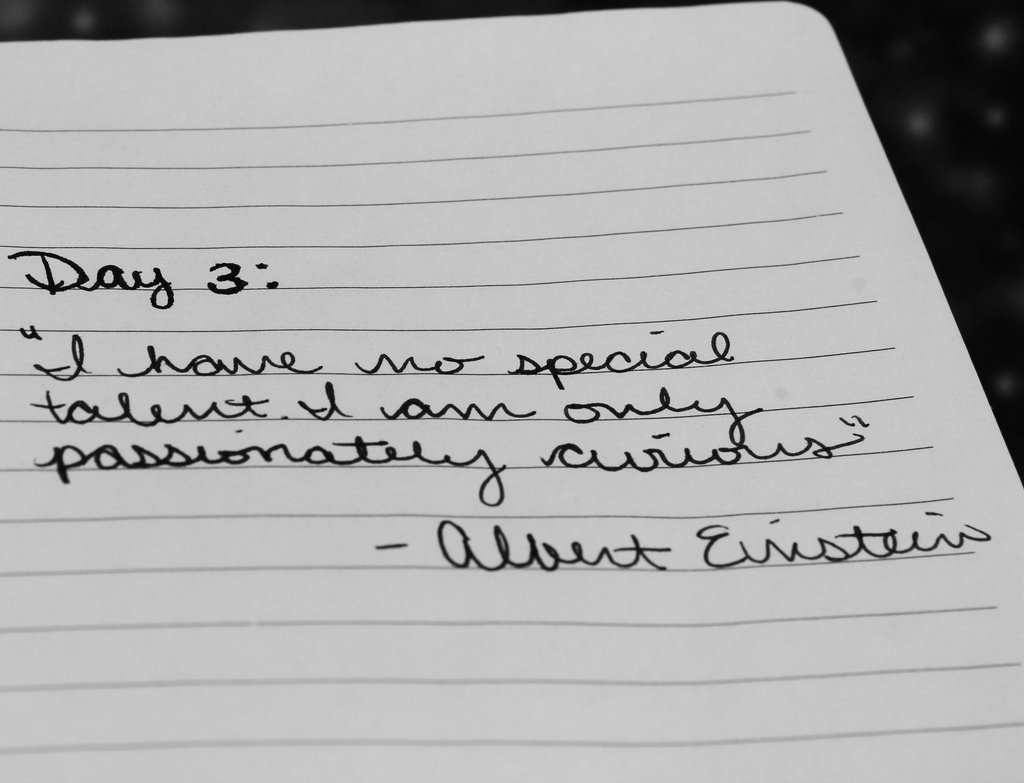 Day 3:
"I have no special
talent. I am only
passionately curious"
- Albert Einstein